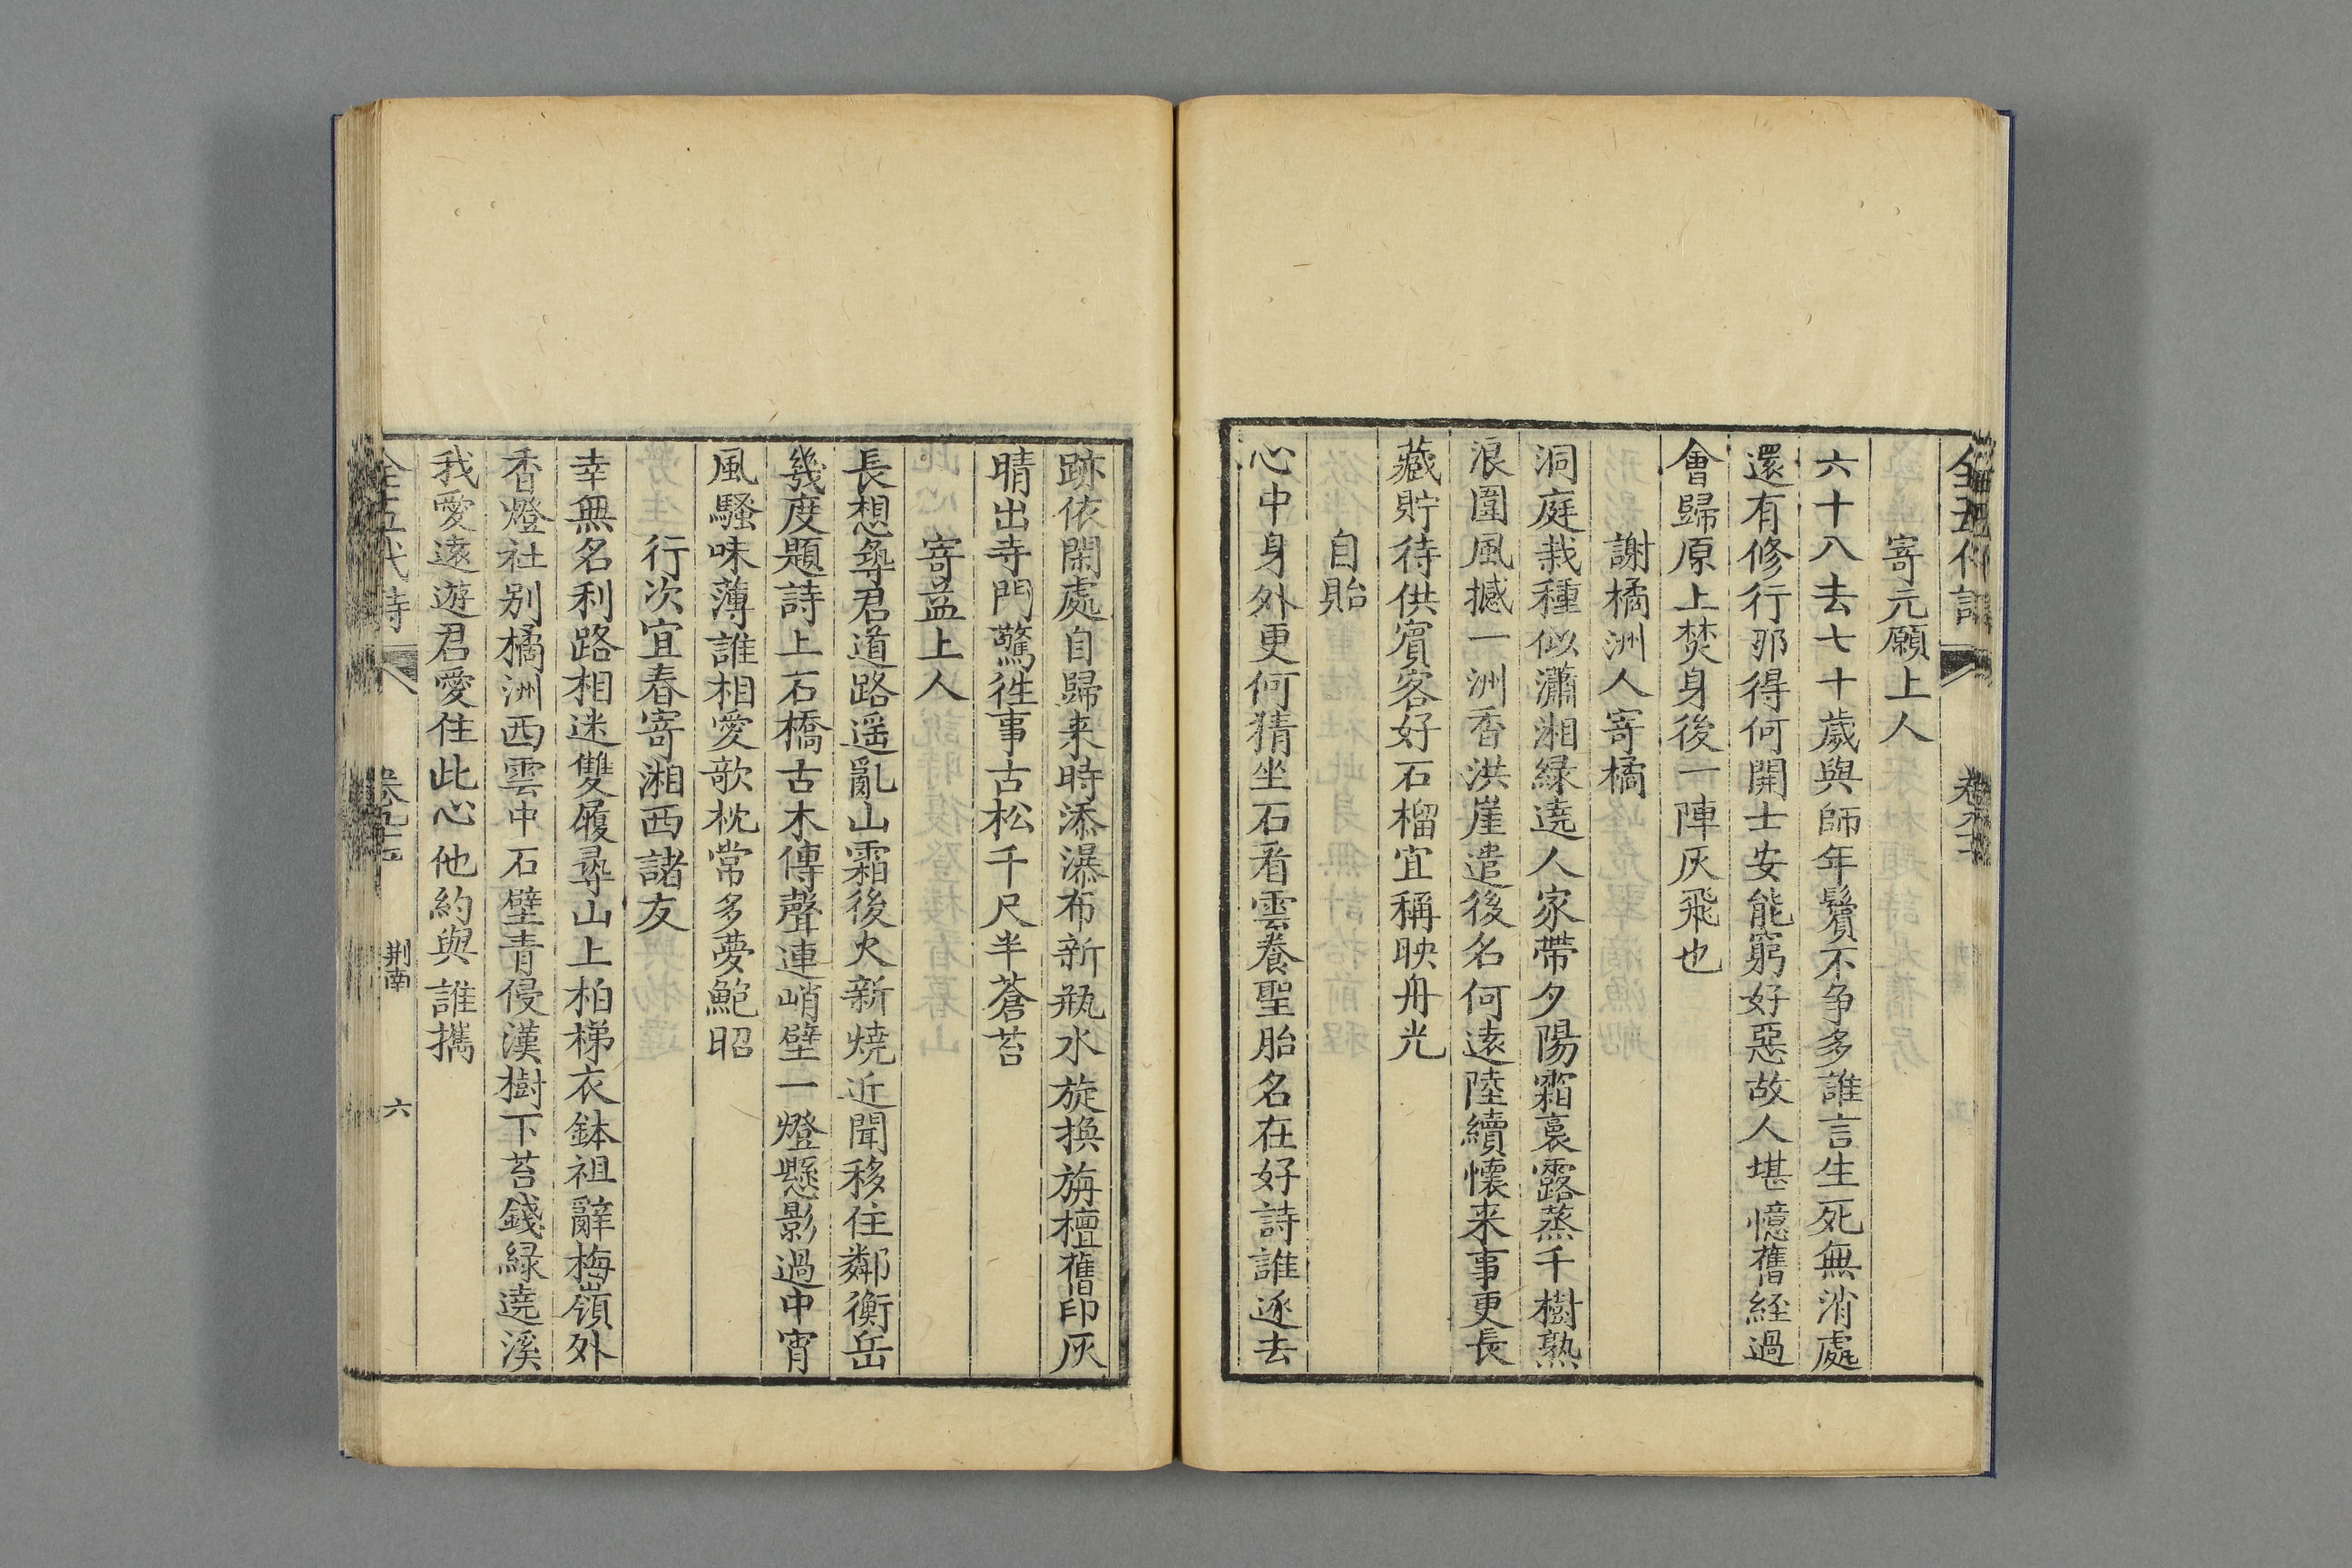 寄元願上人
六十八去七十歲與師年鬢不争多誰言生死無消處
還有修行那得何開士安能窮好惡故人堪憶舊經過
會歸原上焚身後一陣灰飛也
謝橘洲人寄橘
洞庭栽種似瀟湘緑遶人家帶夕陽霜裛露蒸千樹熟
浪圍風撼一洲香洪崖遣後名何遠陸續懷来事更長
藏貯待供賓客好石榴宜稱映舟光
自貽
心中身外更何猜坐石看雲養聖胎名在好詩誰逐去
跡依閑處自歸来時添瀑布新瓶水旋換旃檀舊印灰
晴出寺門驚徃事古松千尺半蒼苔
寄益上人
長想尋君道路遥亂山霜後火新燒近聞移住鄰衡岳
幾度題詩上石橋古木傳聲連峭壁一燈懸影過中宵
風騷味薄誰相愛欹枕常多夢鮑昭
行次宜春寄湘西諸友
幸無名利路相迷雙履尋山上柏梯衣鉢祖辭梅嶺外
香燈社别橘洲西雲中石壁青侵漢樹下苔錢緑遶溪
我愛遠遊君愛住此心他約與誰攜
全五代詩
荆南
六